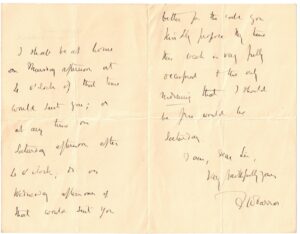 I shall be at home
on Thursday afternoon at
o'clock if that time
would suit you; or
at any time on
Saturday afternoon after
o'clock, or on
Wednesday afternoon if
that would suit you
better for the
you
kindly propose. My time
this week is very fully
occupied & the only
that I should
be free would be
Saturday.
I am, Dear Sir,
Very faithfully yours